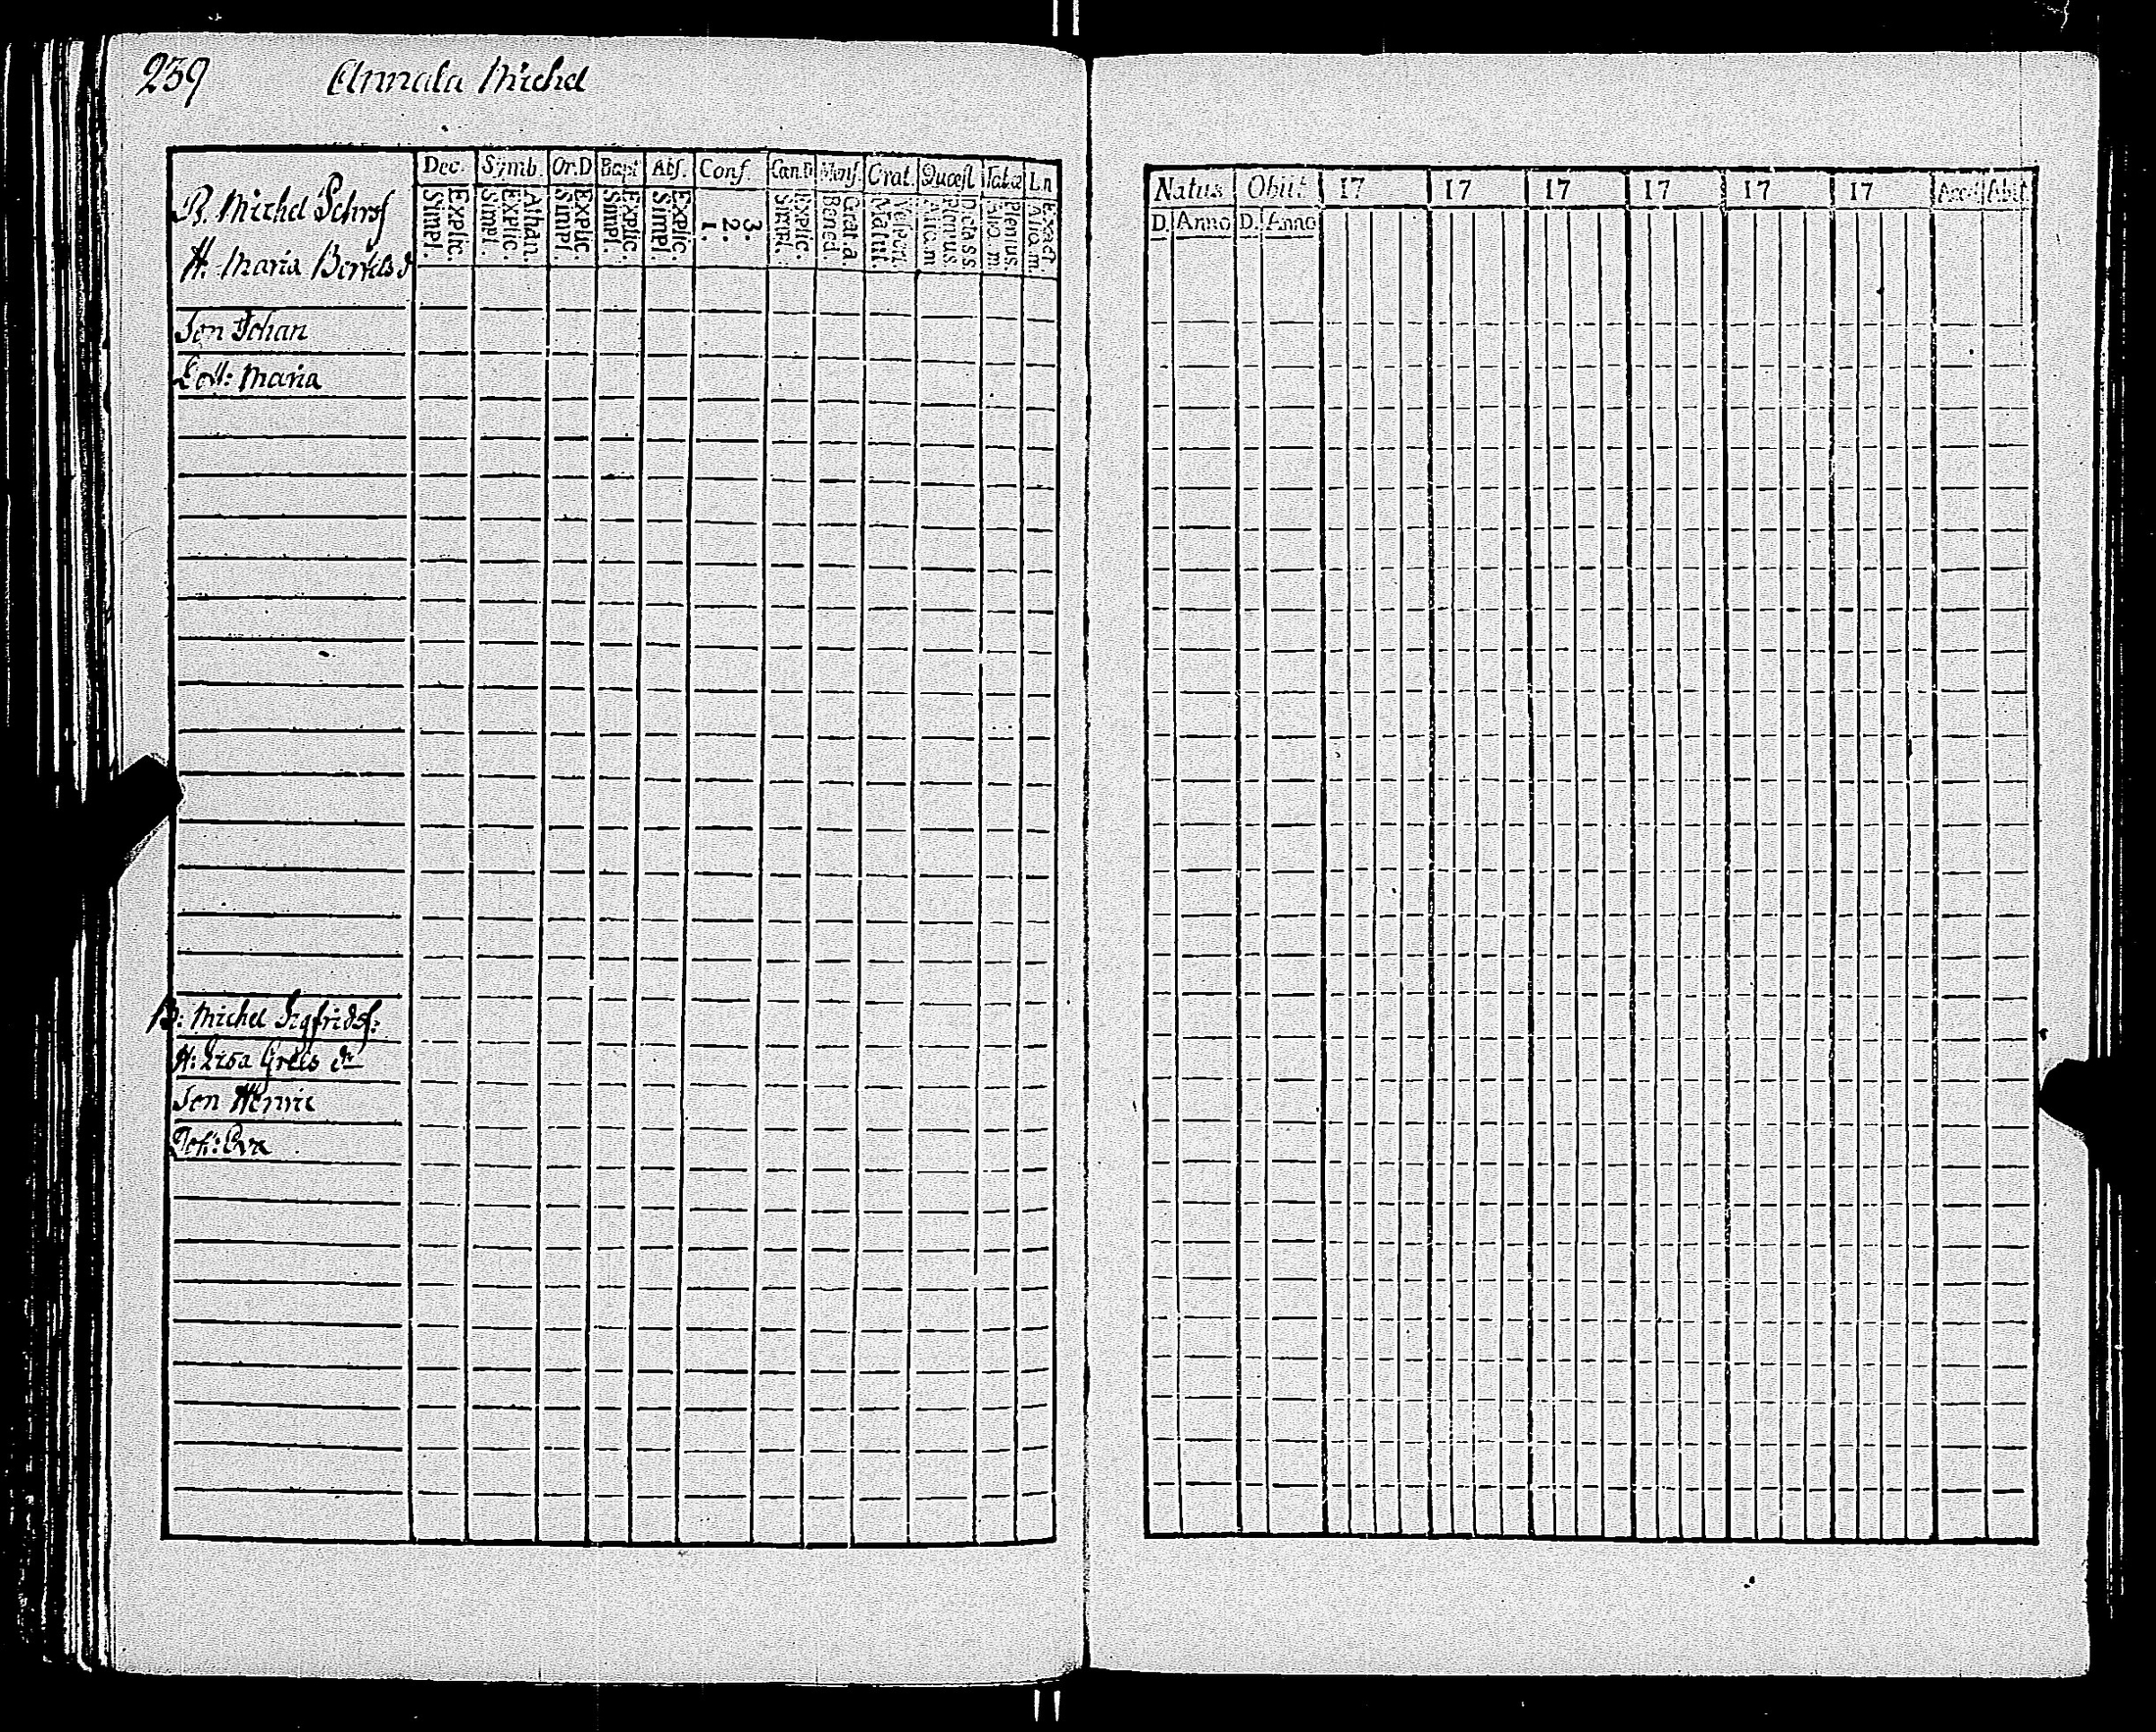 239 Annala Michel
Dec. Symb. Or.D Bapt Abs. Conf. Can.D Mens. Grat. Quæst Tabæ Ln
Explic. Simpl. Athan. Explic. Simpl. Explic. Simpl. Explic. Simpl. Explic. Simpl. 3. 2. 1. Explic. Simpl. Grat. a Bened. Vesperi. Matut. Dictass Plenius Aliq. m Plenius. Aliq. m Exact. Aliq. m.
B. Michel
H. Maria Bertils d
Son Johan
Dott: Maria
B: Michel Sigfridss:
H: Lisa Grels dr
Son Henric
Eva
Natus Obiit 17 17 17 17 17 17 Acces Abiit
D. Anno D. Anno